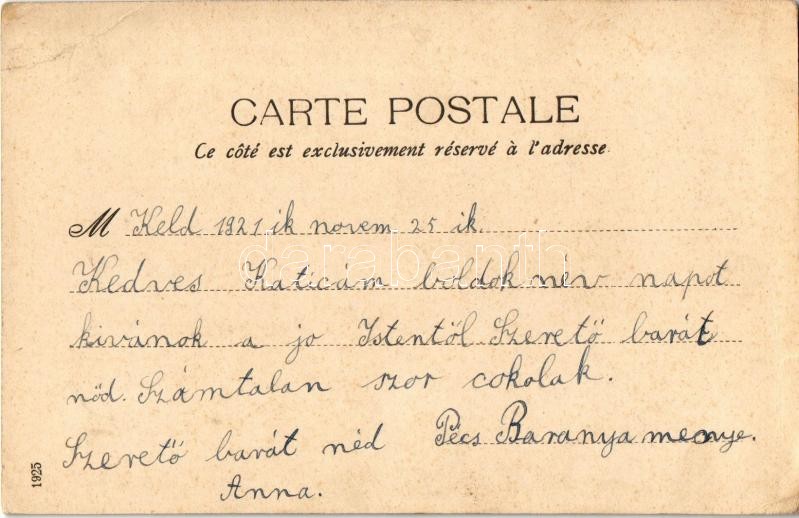 CARTE POSTALE
Ce côté est exclusivement réservé à l'adresse
M Keld 1921 ik novem 25 ik.
darabanth
Kedves Katicám boldok név napot
kivánok a jo Istentől Szerető barát
nőd. Számtalan szor cokolak.
Szerető barát néd Pécs Baranya menye.
Anna.
1925